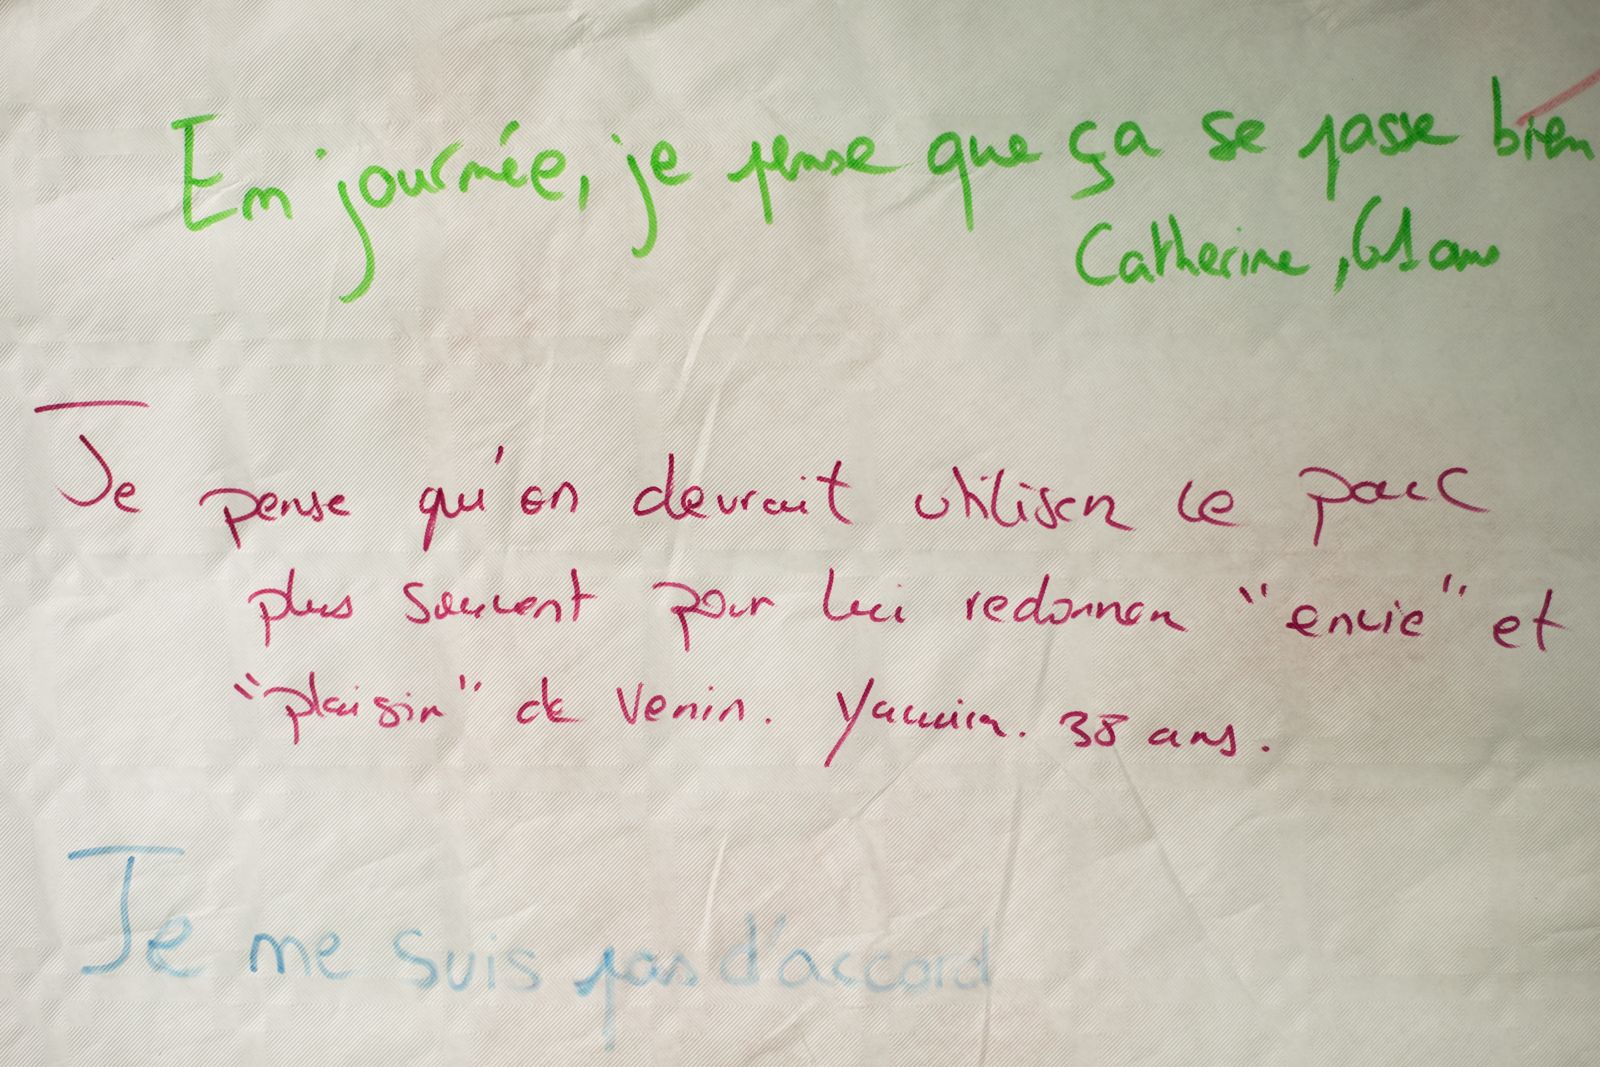 En journée, je pense que ça se passe bien
Catherine, 61 ans
Je pense qu'on devrait utiliser ce parc
plus souvent pour lui redonner "envie" et
"plaisir" de venir. 38 ans.
Je ne suis pas d'accord